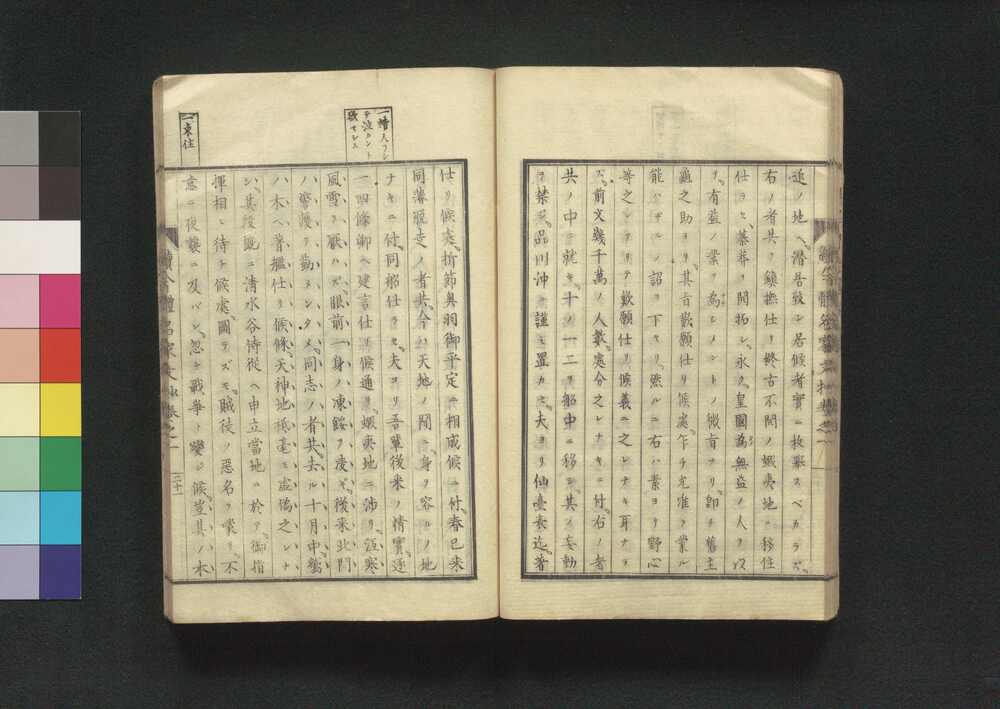 追ノ地ヘ潜居致シ居候者實ニ枚擧スベカラズ
右ノ者共ヲ鎮撫仕リ終古不開ノ蝦夷地ニ移住
仕ヨセ蓁莽ヲ開拓シ永ク皇國為無益ノ人ヲ以
テ有益ノ業ヲ為シメントノ微旨ヲリ即チ舊主
龜之助ヨリ其旨歎願仕リ候處乍チ允准ヲ蒙ル
能ハザルノ詔ヲ下セリ強ルニ右ハ素ヨリ野心
等之レアリテ歎願仕リ候義ニ之レナキ耳ナラ
ズ前文幾千萬ノ人數處分之レナキニ付右ノ者
共ノ中ニ就キ十ノ一二ヲ船中ニ移シ其ノ妄動
ヲ禁ジ品川沖ニ謹ミ置カセ夫ヨリ仙臺表迄著
仕リ候處折節奥羽御平定ニ相成候ニ付春已来
同藩脱走ノ者共今ハ天地ノ間ニ身ヲ容ルノ地
ナキニ付同船仕ラセ夫ヨリ吾輩後来ノ情實逐
一四條卿ヘ建言仕リ候通リ蝦夷地ニ渉リ沍寒
風雪ヲ厭ハズ眼前一身ノ凍餒ヲ凌ギ後来北門
ノ警護ヲ勤メンタメ同志ノ者共去ル十月中鷲
ノ木ヘ着艦仕リ候條天神地祇毫モ虚僞之レナ
シ其後既ニ清水谷侍従ヘ申立當地ニ於テ御指
揮相ヒ待チ候處圖ラズモ賊徒ノ悪名ヲ蒙リ不
意ニ夜襲ニ及バシ忽チ戰爭ト變ジ候豈其ノ木
續今體名家文抄巻之一
二十一